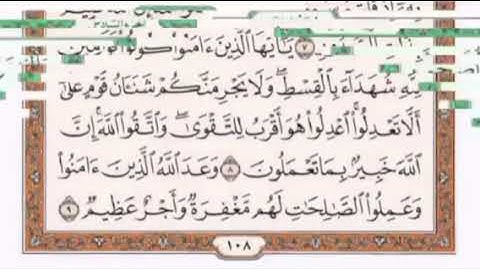 ٧ يَٰٓأَيُّهَا ٱلَّذِينَ ءَامَنُوا۟ كُونُوا۟
لِلَّهِ شُهَدَآءَ بِٱلْقِسْطِ ۖ وَلَا يَجْرِمَنَّكُمْ شَنَـَٔانُ قَوْمٍ عَلَىٰٓ
أَلَّا تَعْدِلُوا۟ ۚ ٱعْدِلُوا۟ هُوَ أَقْرَبُ لِلتَّقْوَىٰ ۖ وَٱتَّقُوا۟ ٱللَّهَ ۚ إِنَّ
ٱللَّهَ خَبِيرٌۢ بِمَا تَعْمَلُونَ ٨ وَعَدَ ٱللَّهُ ٱلَّذِينَ ءَامَنُوا۟
وَعَمِلُوا۟ ٱلصَّٰلِحَٰتِ ۙ لَهُم مَّغْفِرَةٌ وَأَجْرٌ عَظِيمٌ ٩
١٠٨